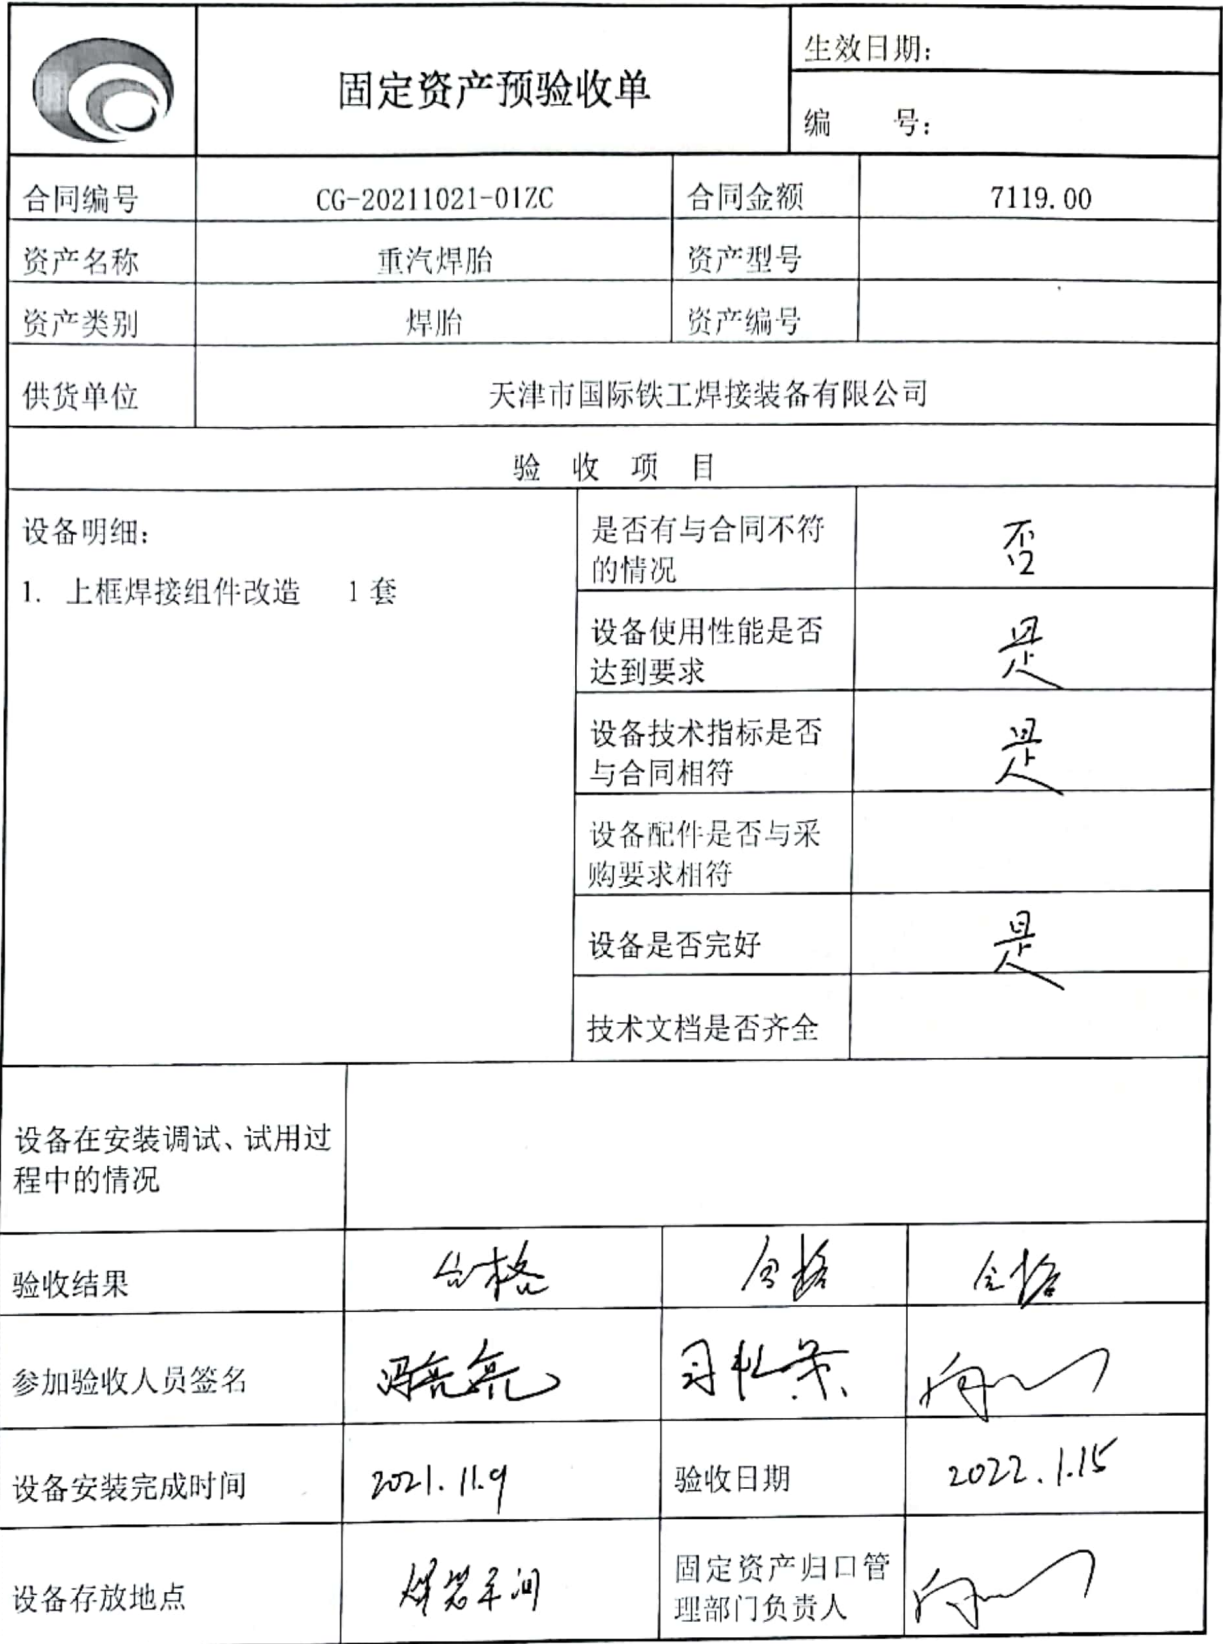 固定资产预验收单
生效日期：
编 号：
合同编号 CG-20211021-01ZC 合同金额 7119.00
资产名称 重汽焊胎 资产型号
资产类别 焊胎 资产编号
供货单位 天津市国际铁工焊接装备有限公司
验 收 项 目
设备明细：
1. 上框焊接组件改造 1 套
是否有与合同不符
的情况
否
设备使用性能是否
达到要求
是
设备技术指标是否
与合同相符
是
设备配件是否与采
购要求相符
设备是否完好 是
技术文档是否齐全
设备在安装调试、试用过
程中的情况
验收结果 合格 合格 合格
参加验收人员签名 冯亮亮
设备安装完成时间 2021.11.9 验收日期 2022.1.15
设备存放地点 车间
固定资产归口管
理部门负责人